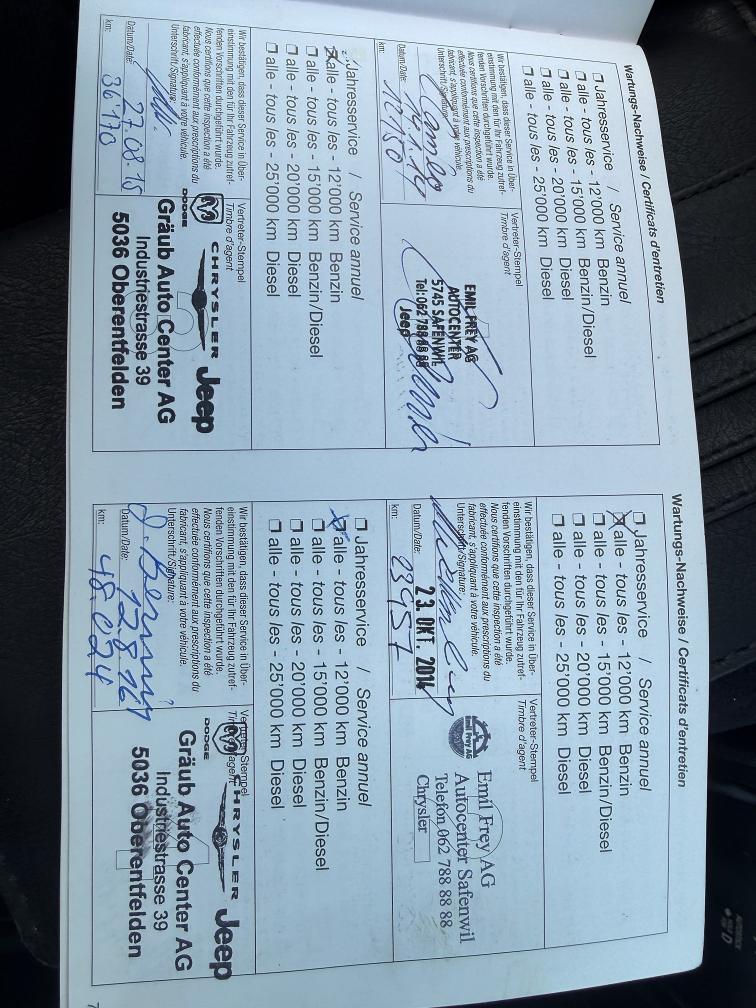 Wartungs-Nachweise / Certificats d'entretien
❒ Jahresservice / Service annuel
❒ alle - tous les - 12'000 km Benzin
❒ alle - tous les - 15'000 km Benzin/Diesel
❒ alle - tous les - 20'000 km Diesel
❒ alle - tous les - 25'000 km Diesel
Wir bestätigen, dass dieser Service in Über-
einstimmung mit den für Ihr Fahrzeug zutref-
fenden Vorschriften durchgeführt wurde.
Nous certifions que cette inspection a été
effectuée conformément aux prescriptions du
fabricant, s'appliquant à votre véhicule.
Unterschrift/Signature:
Datum/Date:
km: 12'150
Vertreter-Stempel
Timbre d'agent
EMIL FREY AG
AUTOCENTER
5745 SAFENWIL
Tel: 062 788 88 88
Jeep
Jahresservice / Service annuel
alle - tous les - 12'000 km Benzin
❒ alle - tous les - 15'000 km Benzin/Diesel
❒ alle - tous les - 20'000 km Diesel
❒ alle - tous les - 25'000 km Diesel
Wir bestätigen, dass dieser Service in Über-
einstimmung mit den für Ihr Fahrzeug zutref-
fenden Vorschriften durchgeführt wurde.
Nous certifions que cette inspection a été
effectuée conformément aux prescriptions du
fabricant, s'appliquant à votre véhicule.
Unterschrift/Signature:
Datum/Date: 27.08.15
km: 36'170
Vertreter-Stempel
Timbre d'agent
CHRYSLER Jeep
DODGE
Gräub Auto Center AG
Industriestrasse 39
5036 Oberentfelden
Wartungs-Nachweise / Certificats d'entretien
❒ Jahresservice / Service annuel
alle - tous les - 12'000 km Benzin
❒ alle - tous les - 15'000 km Benzin/Diesel
❒ alle - tous les - 20'000 km Diesel
❒ alle - tous les - 25'000 km Diesel
Wir bestätigen, dass dieser Service in Über-
einstimmung mit den für Ihr Fahrzeug zutref-
fenden Vorschriften durchgeführt wurde.
Nous certifions que cette inspection a été
effectuée conformément aux prescriptions du
fabricant, s'appliquant à votre véhicule.
Unterschrift/Signature:
Datum/Date: 23. OKT. 2014
km: 23957
Vertreter-Stempel
Timbre d'agent
Emil Frey AG
Emil Frey AG
Autocenter Safenwil
Telefon 062 788 88 88
Chrysler
❒ Jahresservice / Service annuel
alle - tous les - 12'000 km Benzin
❒ alle - tous les - 15'000 km Benzin/Diesel
❒ alle - tous les - 20'000 km Diesel
❒ alle - tous les - 25'000 km Diesel
Wir bestätigen, dass dieser Service in Über-
einstimmung mit den für Ihr Fahrzeug zutref-
fenden Vorschriften durchgeführt wurde.
Nous certifions que cette inspection a été
effectuée conformément aux prescriptions du
fabricant, s'appliquant à votre véhicule.
Unterschrift/Signature:
Datum/Date: 12.8.16
km: 48.024
Vertreter-Stempel
Timbre d'agent
CHRYSLER Jeep
DODGE
Gräub Auto Center AG
Industriestrasse 39
5036 Oberentfelden
7